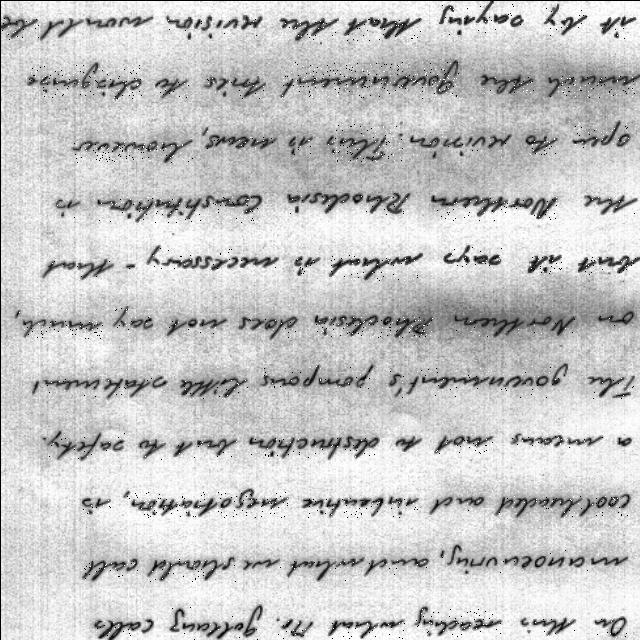 On this reading what Mr. calls
manoeuvring, and what we should call
coolheaded and inventive negotiation, is
a means not to destruction but to safety.
The government's pompous little statement
on Northern Rhodesia does not say much,
but it says what is necessary - that
the Northern Rhodesia Constitution is
open to revision. This is news, however
much the Government tries to disguise
it by saying that the revision would be